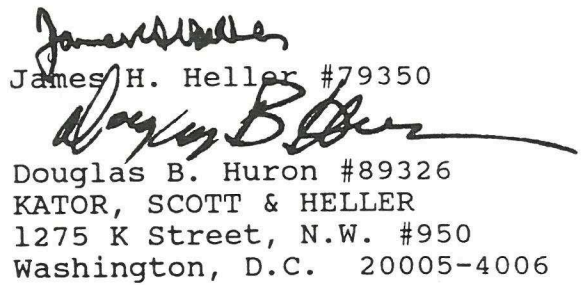 James H. Heller
James H. Heller #79350
Douglas B. Huron
Douglas B. Huron #89326
KATOR, SCOTT & HELLER
1275 K Street, N.W. #950
Washington, D.C. 20005-4006